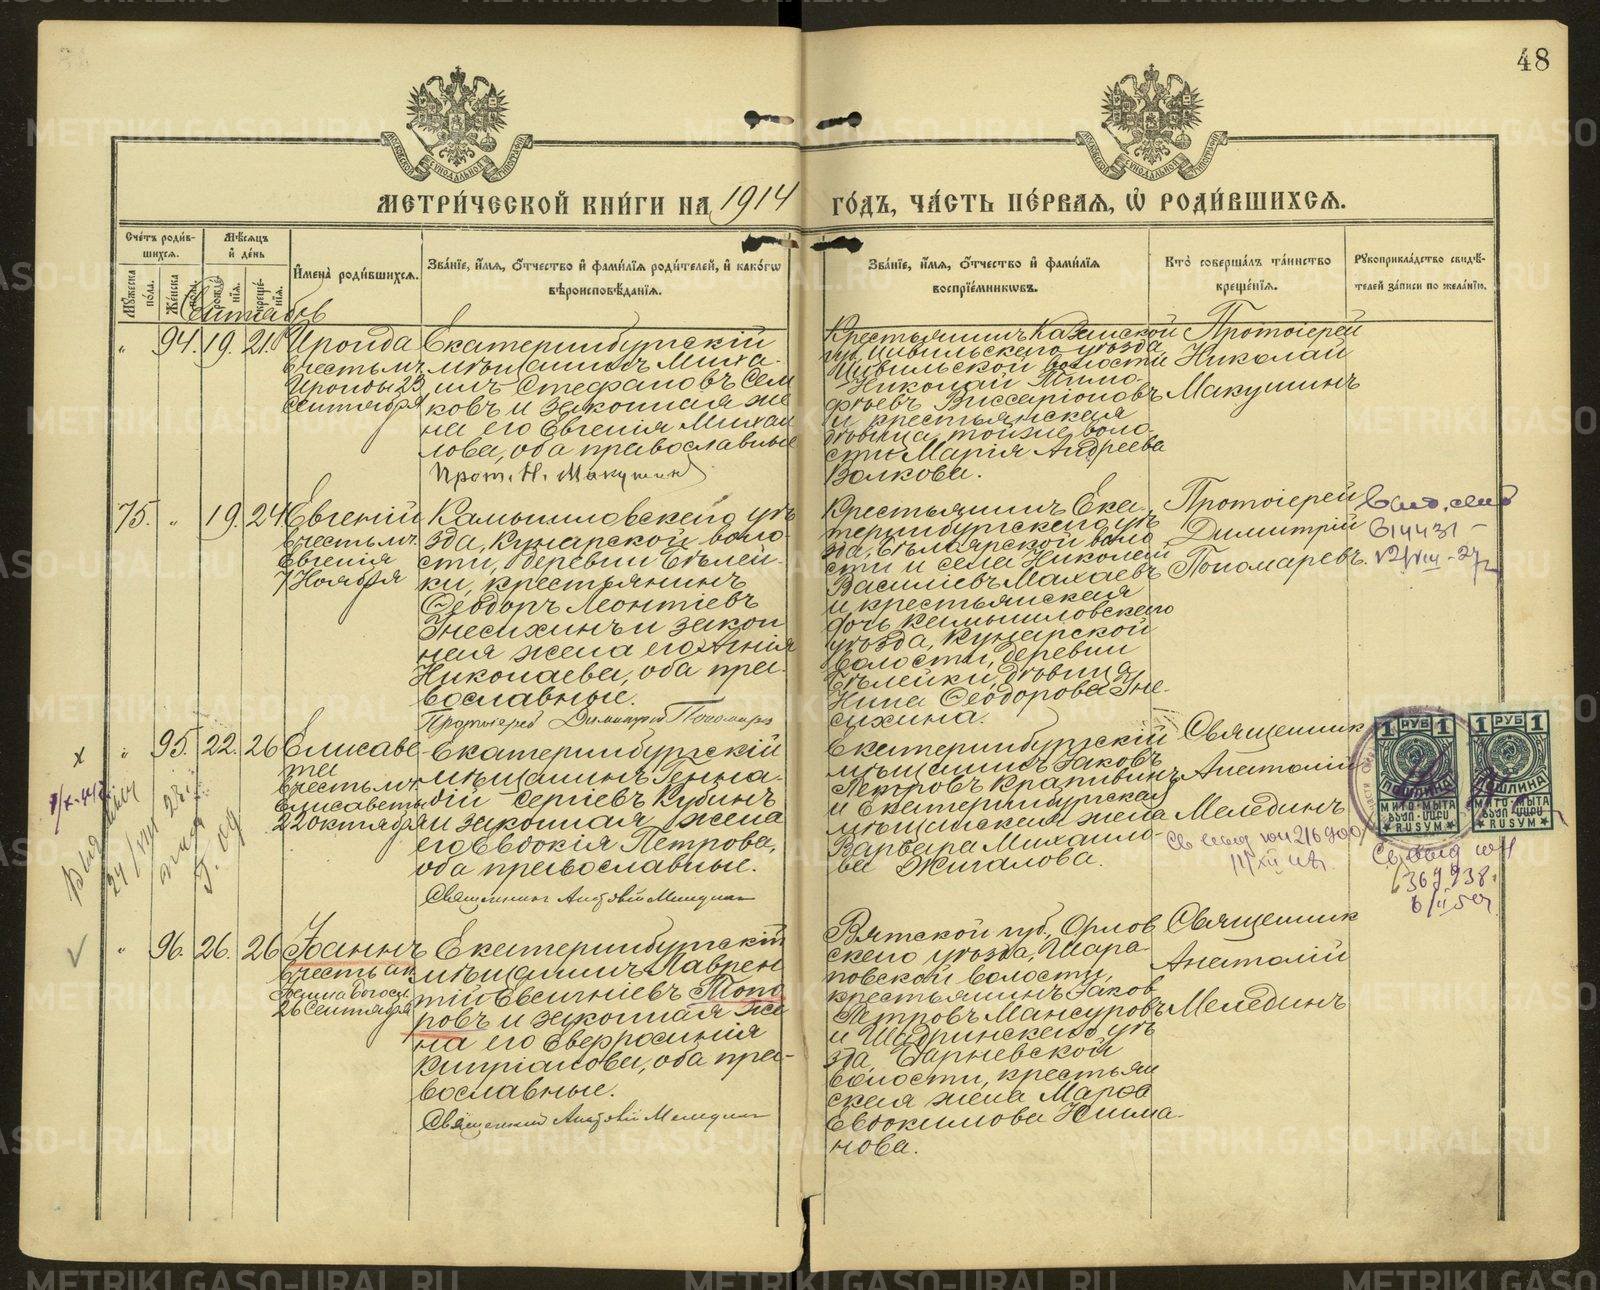 48
МЕТРИ́ЧЕСКОЙ КНИ́ГИ НА 1914 ГО́ДЪ, ЧА́СТЬ ПЕ́РВАЯ, Ѡ҆ РОДИ́ВШИХСЯ.
Сче́тъ роди́в-
шихся.
Му́жеска по́ла.
Же́нска по́ла.
Мѣ́сяцъ
и҆ де́нь
рожде́нїѧ.
креще́нїѧ.
И҆мена̀ роди́вшихся.
Зва́нїе, и҆́мя, ѻ҆́тчество и҆ фами́лїя роди́телей, и҆ како́гѡ
вѣроисповѣ́данїя.
Зва́нїе, и҆́мя, ѻ҆́тчество и҆ фами́лїя
воспрїе́мникѡвъ.
Кто̀ соверша́лъ та́инство
креще́нїя.
Рукоприкла́дство свидѣ́-
телей за́писи по жела́нїю.
Сентябрь
" 94. 19. 21.
Ираида
в честь мч.
Ираиды 23
сентября
Екатеринбургскій
мѣщанинъ Миха-
илъ Стефановъ Сем
ковъ и законная же
на его Евгенія Михаи
лова, оба православные
Прот. Н. Макушинъ
Крестьянинъ Казанской
губ. Цивильскаго уѣзда
Цивильской волости
Николай Тимо-
феевъ Виссаріоновъ
и крестьянская
дѣвица той же воло-
сти Марія Андреева
Волкова.
Протоіерей
Николай
Макушинъ
75. " 19. 24
Евгеній
в честь мч.
Евгенія
7 Ноября
Камышловскаго уѣ
зда, Кунарской воло-
сти, деревни Бѣлей-
ки, крестьянинъ
Ѳеодоръ Леонтіевъ
Гнесихинъ и закон
ная жена его Агнія
Николаева, оба пра-
вославные.
Протоіерей Димитрій Пономаревъ
Крестьянинъ Ека-
теринбургскаго уѣ
зда, Бѣлоярской воло
сти и села Николай
Василіевъ Махаевъ
и крестьянская
дочь Камышловскаго
уѣзда, Кунарской
волости, деревни
Бѣлейки, дѣвица
Нина Ѳеодорова Гне-
сихина.
Протоіерей
Димитрій
Пономаревъ.
" 95. 22. 26
Елисаве-
та
в честь мч.
Елисаветы
22 октября
Екатеринбургскій
мѣщанинъ Генна-
дій Сергіевъ Кубинъ
и законная жена
его Евдокія Петрова,
оба православные.
Священникъ Анатолій Мелединъ
Екатеринбургскій
мѣщанинъ Іаковъ
Петровъ Крапивинъ
и Екатеринбургская
мѣщанская жена
Варвара Михаило-
ва Жигалова.
Священник
Анатолій
Мелединъ
1 РУБ 1
ПОШЛИНА
МИТО • МЫТА
RUSYM
1 РУБ 1
ПОШЛИНА
МИТО • МЫТА
RUSYM
" 96. 26. 26
Іоаннъ
в честь ап.
Іоанна Богосл.
26 Сентября
Екатеринбургскій
мѣщанинъ Лаврен
тій Евсигніевъ Топо
ровъ и законная же
на его Евфросинія
Кипріанова, оба пра-
вославные.
Священникъ Анатолій Мелединъ
Вятской губ., Орлов
скаго уѣзда, Шара-
повской волости,
крестьянинъ Іаков
Петровъ Мансуровъ
и Шадринскаго уѣ
зда, Барневской
волости, крестьян
ская жена Марѳа
Евдокимова Нисма-
нова.
Священник
Анатолій
Мелединъ
METRIKI.GASO-URAL.RU